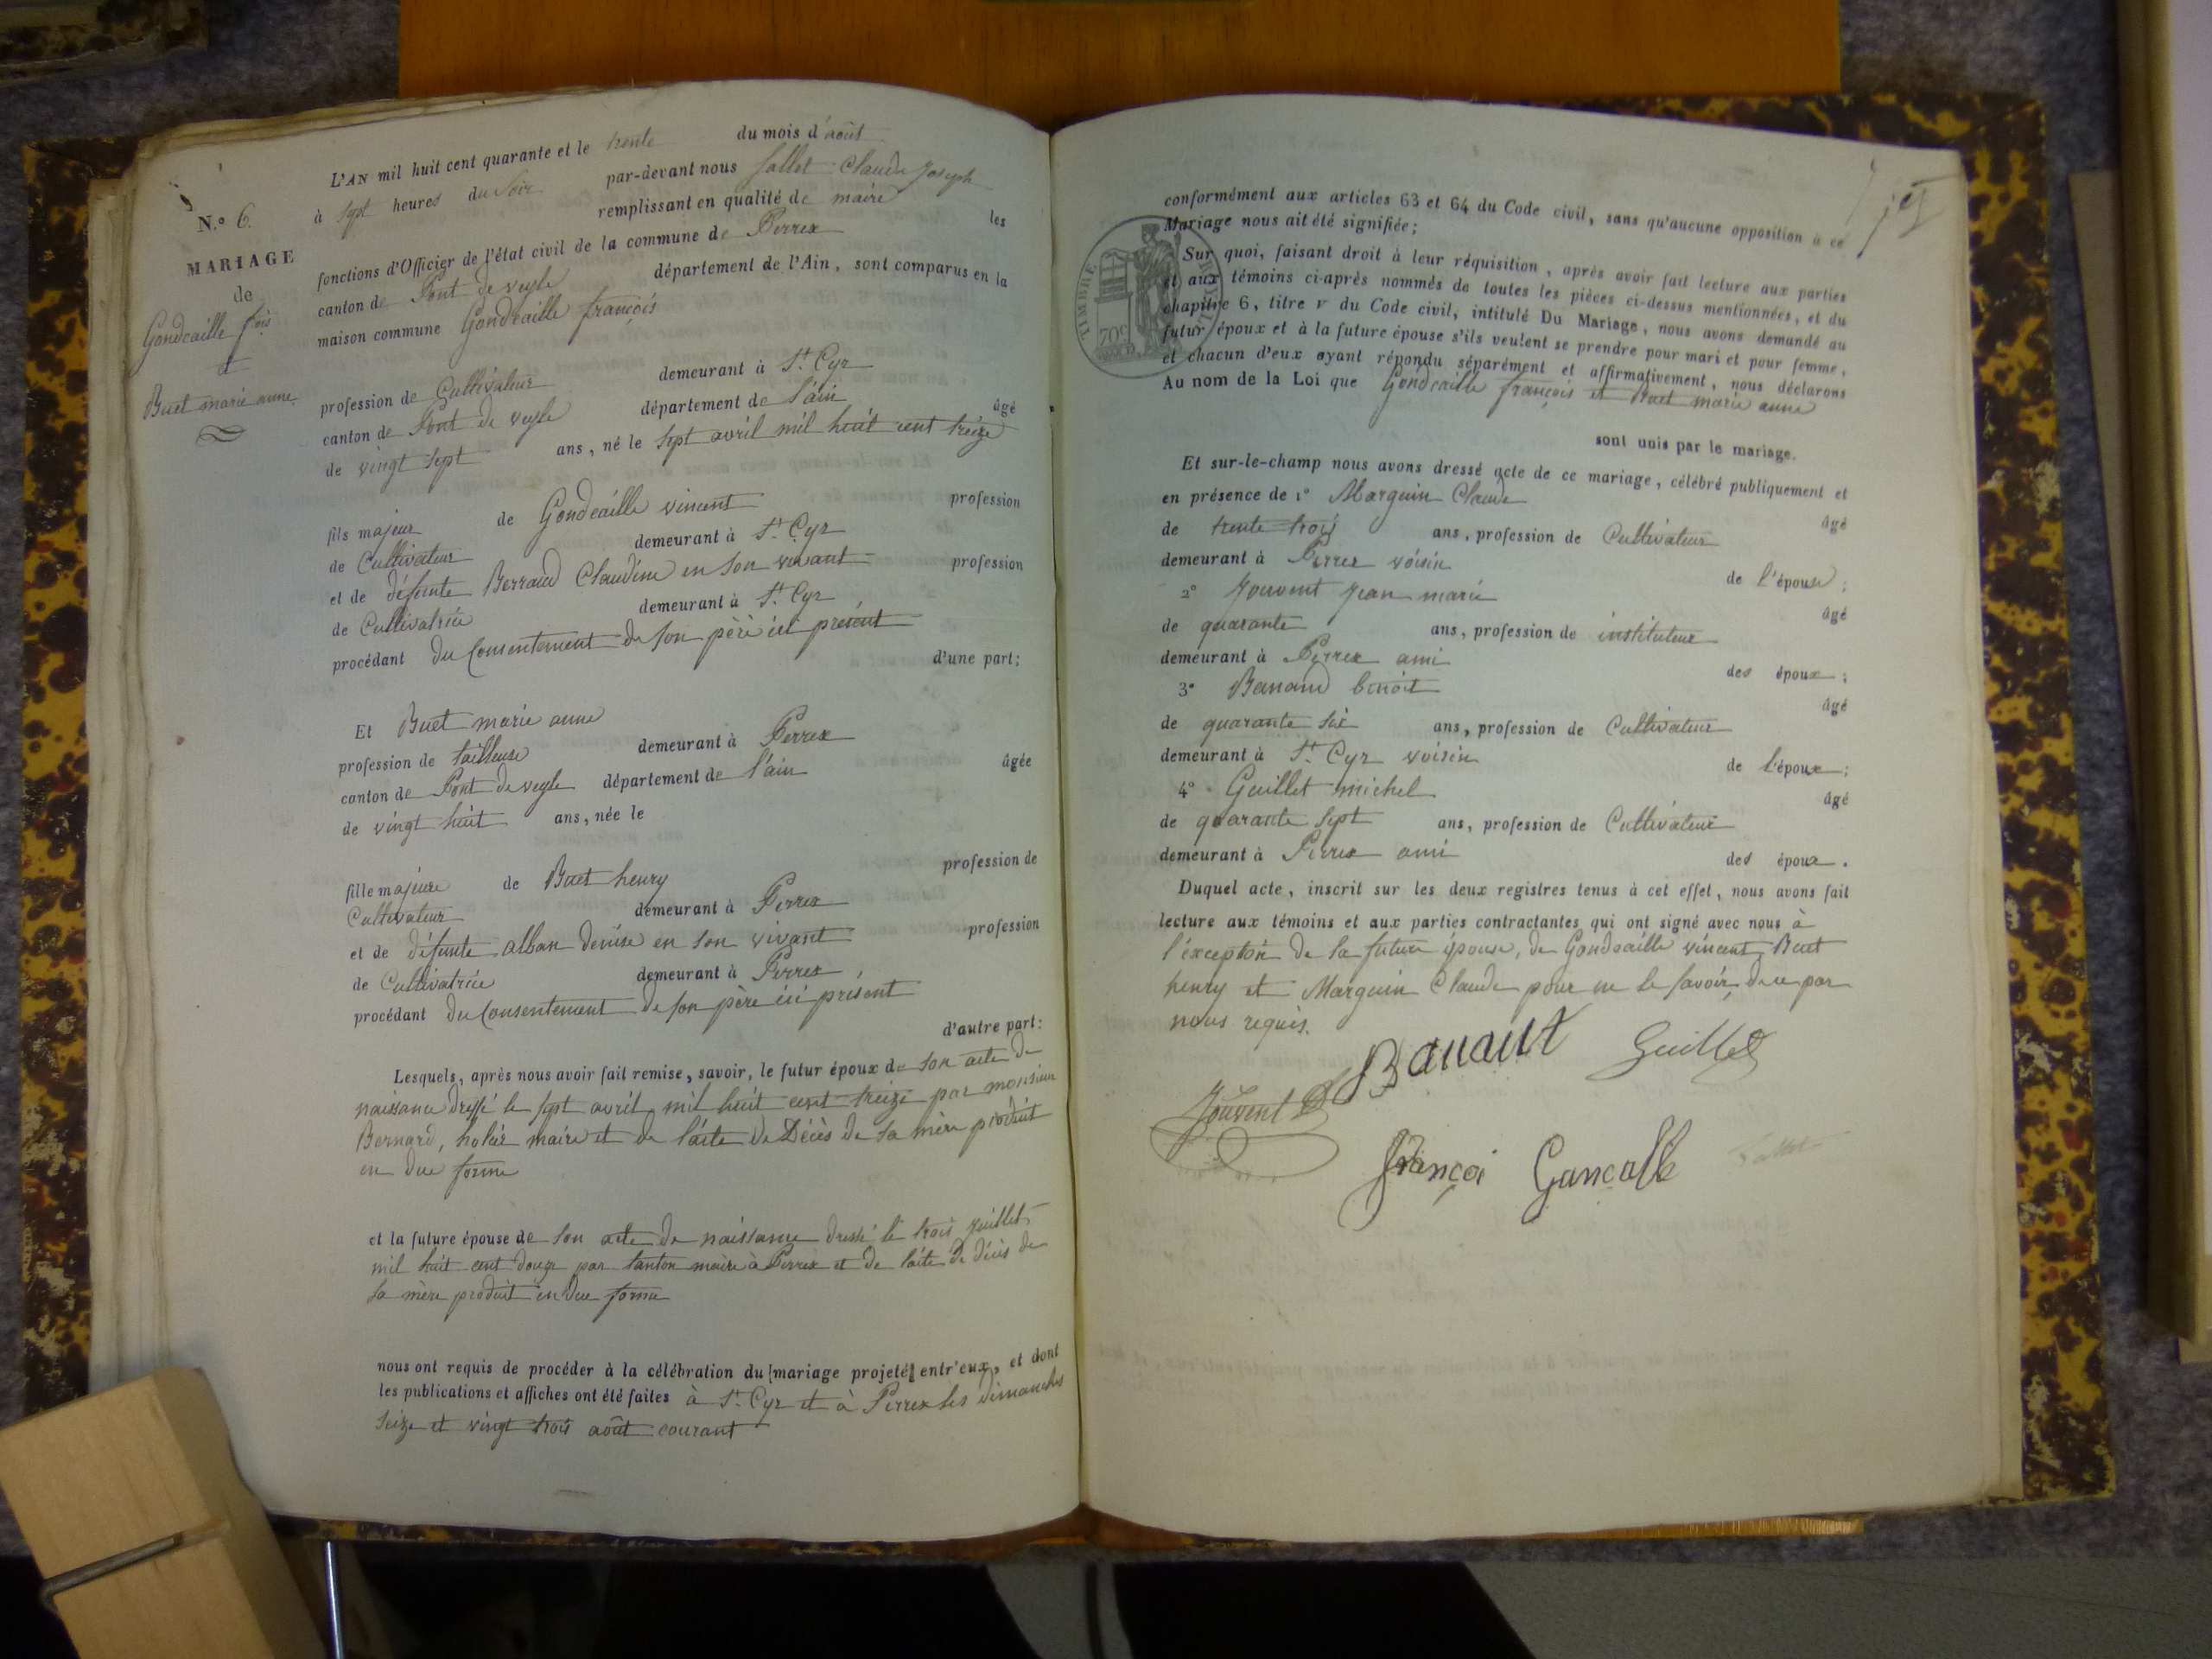 N.º 6.
MARIAGE
de
Gondcaille f.ois
et
Buet marie anne.
L'AN mil huit cent quarante et le trente du mois d'août
à sept heures du soir par-devant nous fallet Claude Joseph
remplissant en qualité de maire les
fonctions d'Officier de l'état civil de la commune de Perrex
canton de Pont de veyle département de l'Ain, sont comparus en la
maison commune Gondcaille françois
profession de Cultivateur demeurant à St. Cyr
canton de Pont de veyle département de l'ain âgé
de vingt sept ans, né le sept avril mil huit cent treize
fils majeur de Gondcaille vincent profession
de Cultivateur demeurant à St. Cyr
et de défunte Berraud Claudine en son vivant profession
de Cultivatrice demeurant à St. Cyr
procédant du Consentement de son père ici présent
d'une part;
Et Buet marie anne
profession de tailleuse demeurant à Perrex
canton de Pont de veyle département de l'ain âgée
de vingt huit ans, née le
fille majeure de Buet henry profession de
Cultivateur demeurant à Perrex
et de défunte alban denise en son vivant profession
de Cultivatrice demeurant à Perrex
procédant du Consentement de son père ici présent
d'autre part:
Lesquels, après nous avoir fait remise, savoir, le futur époux de son acte de
naissance dressé le sept avril mil huit cent treize par monsieur
Bernard, maire et de l'acte de Décès de sa mère produit
en due forme
et la future épouse de son acte de naissance dressé le trois juillet
mil huit cent douze par tanton maire à Perrex et de l'acte de décès de
sa mère produit en due forme
nous ont requis de procéder à la célébration du mariage projeté entr'eux, et dont
les publications et affiches ont été faites à St. Cyr et à Perrex les dimanches
seize et vingt trois août courant
conformément aux articles 63 et 64 du Code civil, sans qu'aucune opposition à ce
Mariage nous ait été signifiée;
Sur quoi, faisant droit à leur réquisition, après avoir fait lecture aux parties
et aux témoins ci-après nommés de toutes les pièces ci-dessus mentionnées, et du
chapitre 6, titre v du Code civil, intitulé Du Mariage, nous avons demandé au
futur époux et à la future épouse s'ils veulent se prendre pour mari et pour femme,
et chacun d'eux ayant répondu séparément et affirmativement, nous déclarons
Au nom de la Loi que Gondcaille françois et Buet marie anne
sont unis par le mariage.
TIMBRE ROYAL
70c
Et sur-le-champ nous avons dressé acte de ce mariage, célébré publiquement et
en présence de 1º Marguin Claude âgé
de trente trois ans, profession de Cultivateur
demeurant à Perrex voisin de l'épouse;
2º Jouvent jean marie âgé
de quarante ans, profession de instituteur
demeurant à Perrex ami des époux;
3º Banand benoit âgé
de quarante six ans, profession de Cultivateur
demeurant à St. Cyr voisin de l'époux;
4º Guillet michel âgé
de quarante sept ans, profession de Cultivateur
demeurant à Perrex ami des époux.
Duquel acte, inscrit sur les deux registres tenus à cet effet, nous avons fait
lecture aux témoins et aux parties contractantes qui ont signé avec nous à
l'exception de la future épouse, de Gondcaille vincent Buet
henry et Marguin Claude pour ne le savoir, de ce par
nous requis.
Banant Guillet
Jouvent
françoi Gancalle fallet